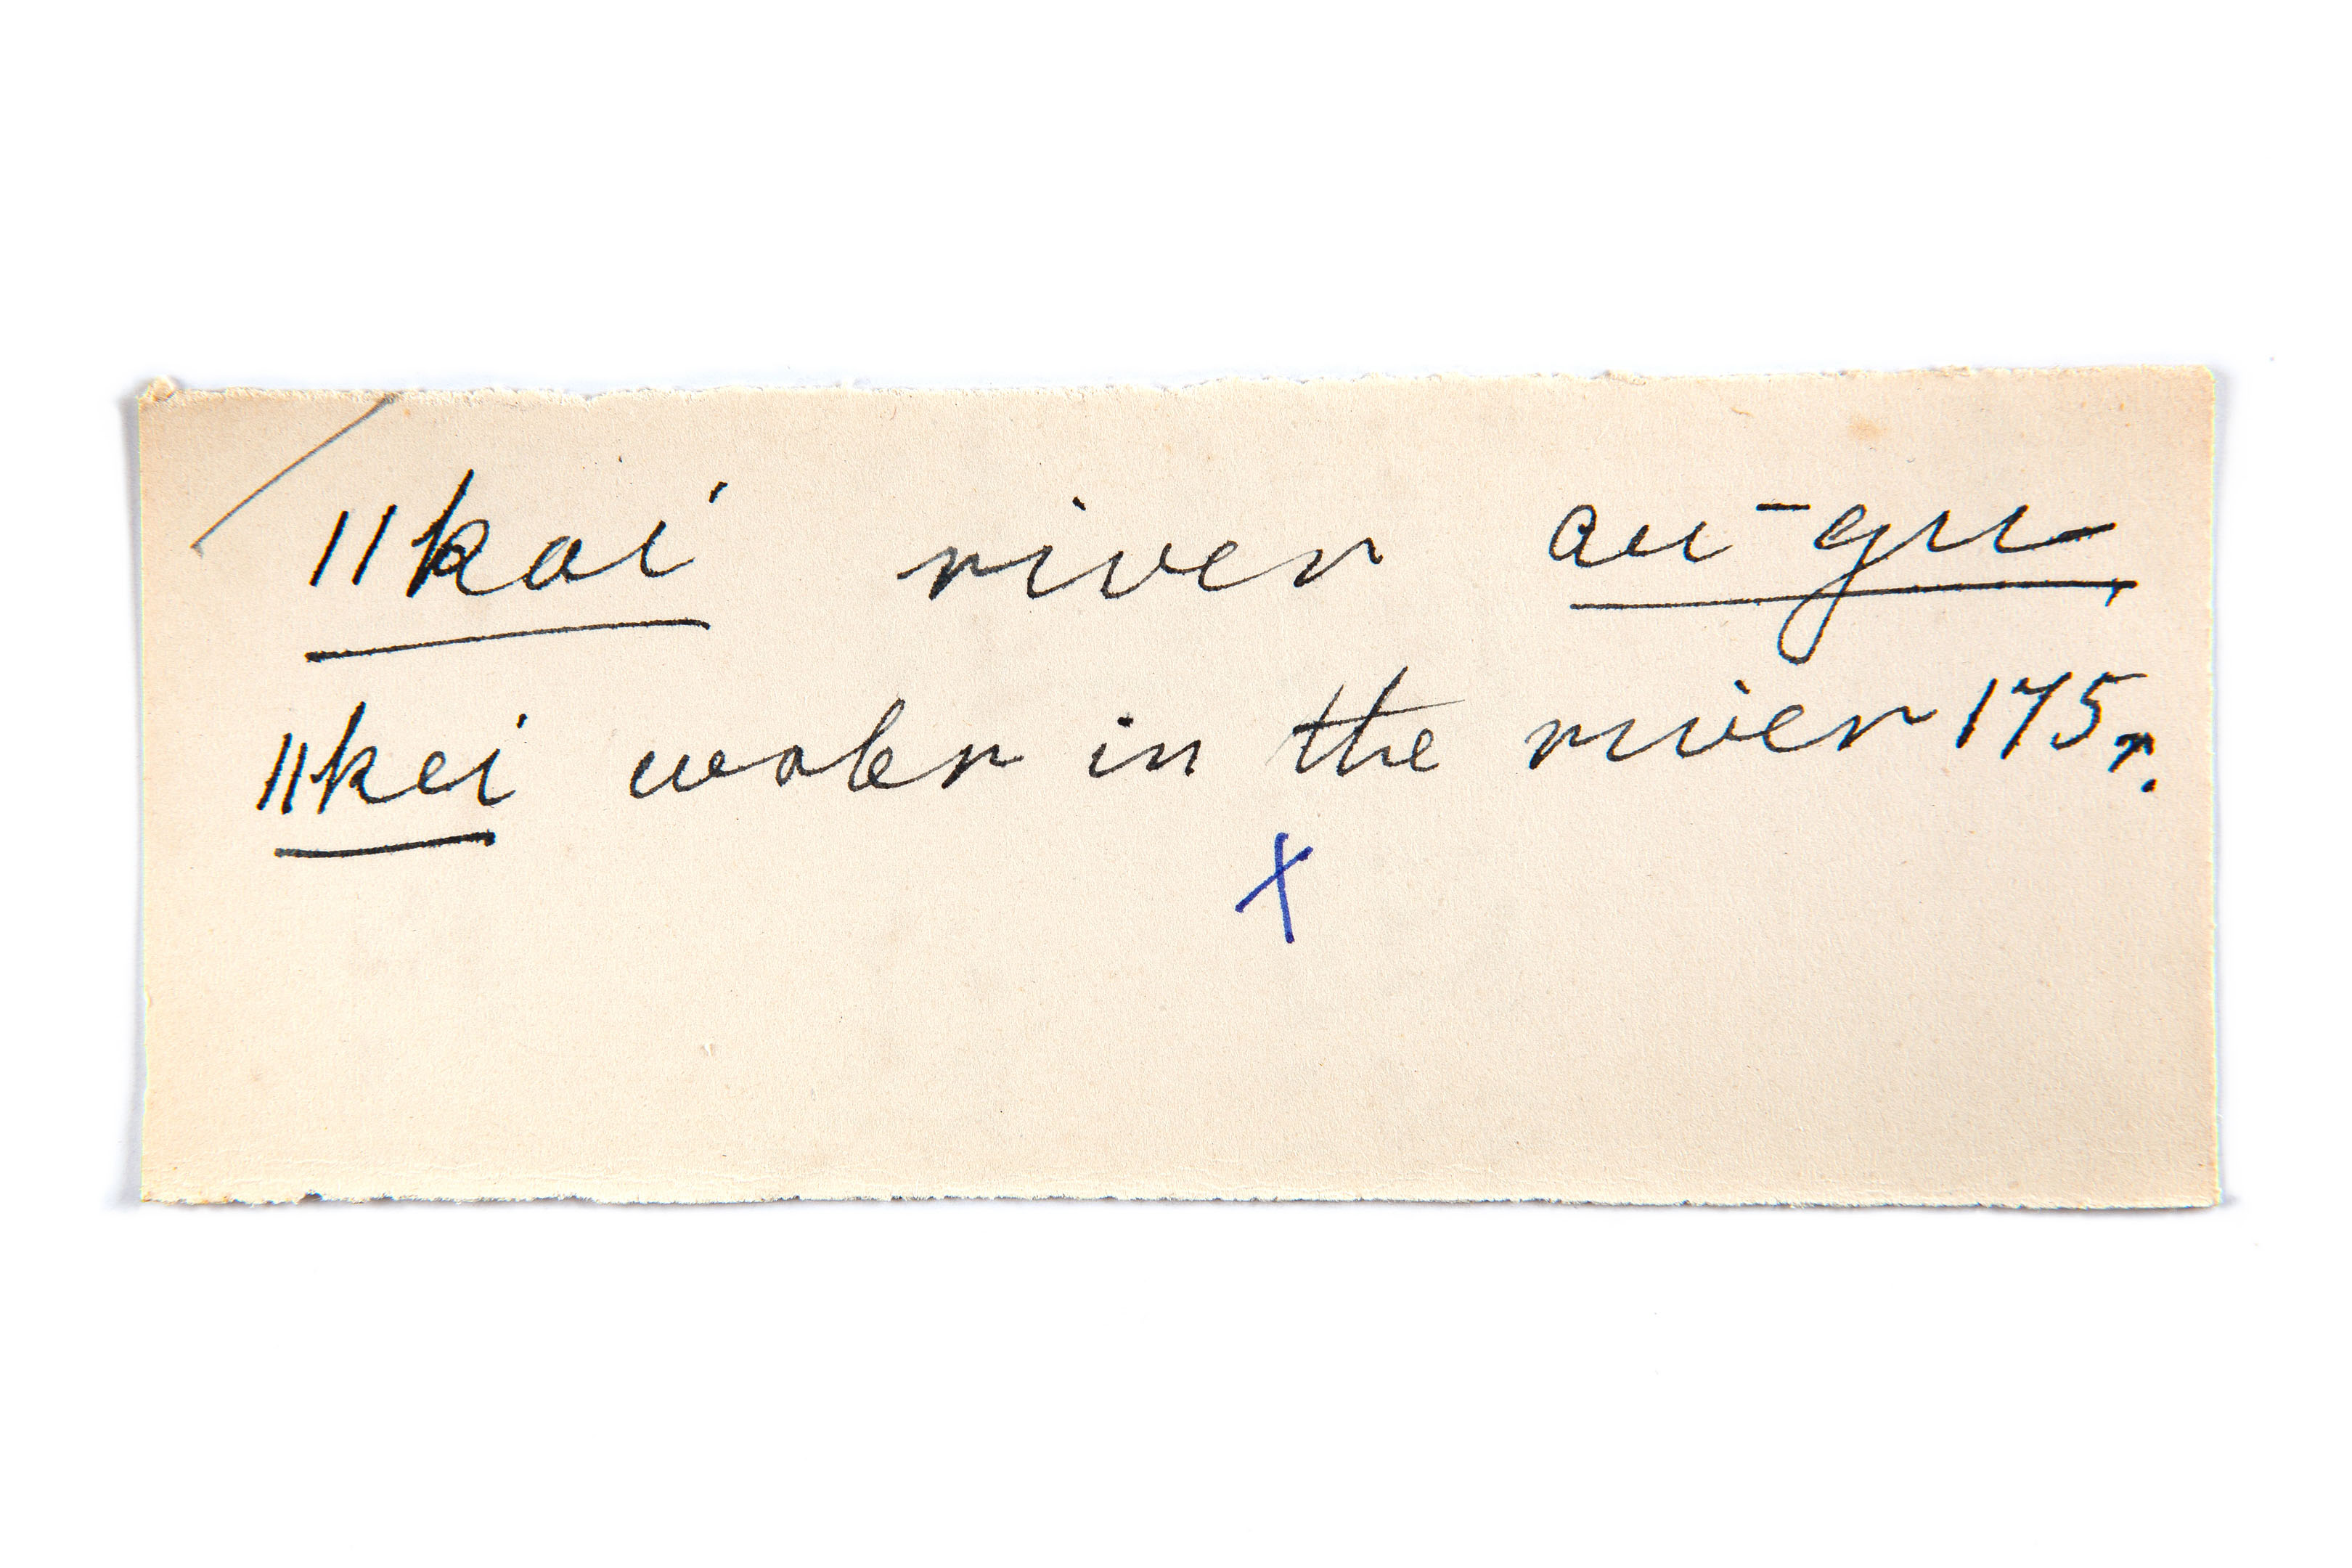 ||kai river au-gu
||kei water in the river 175 r.
x